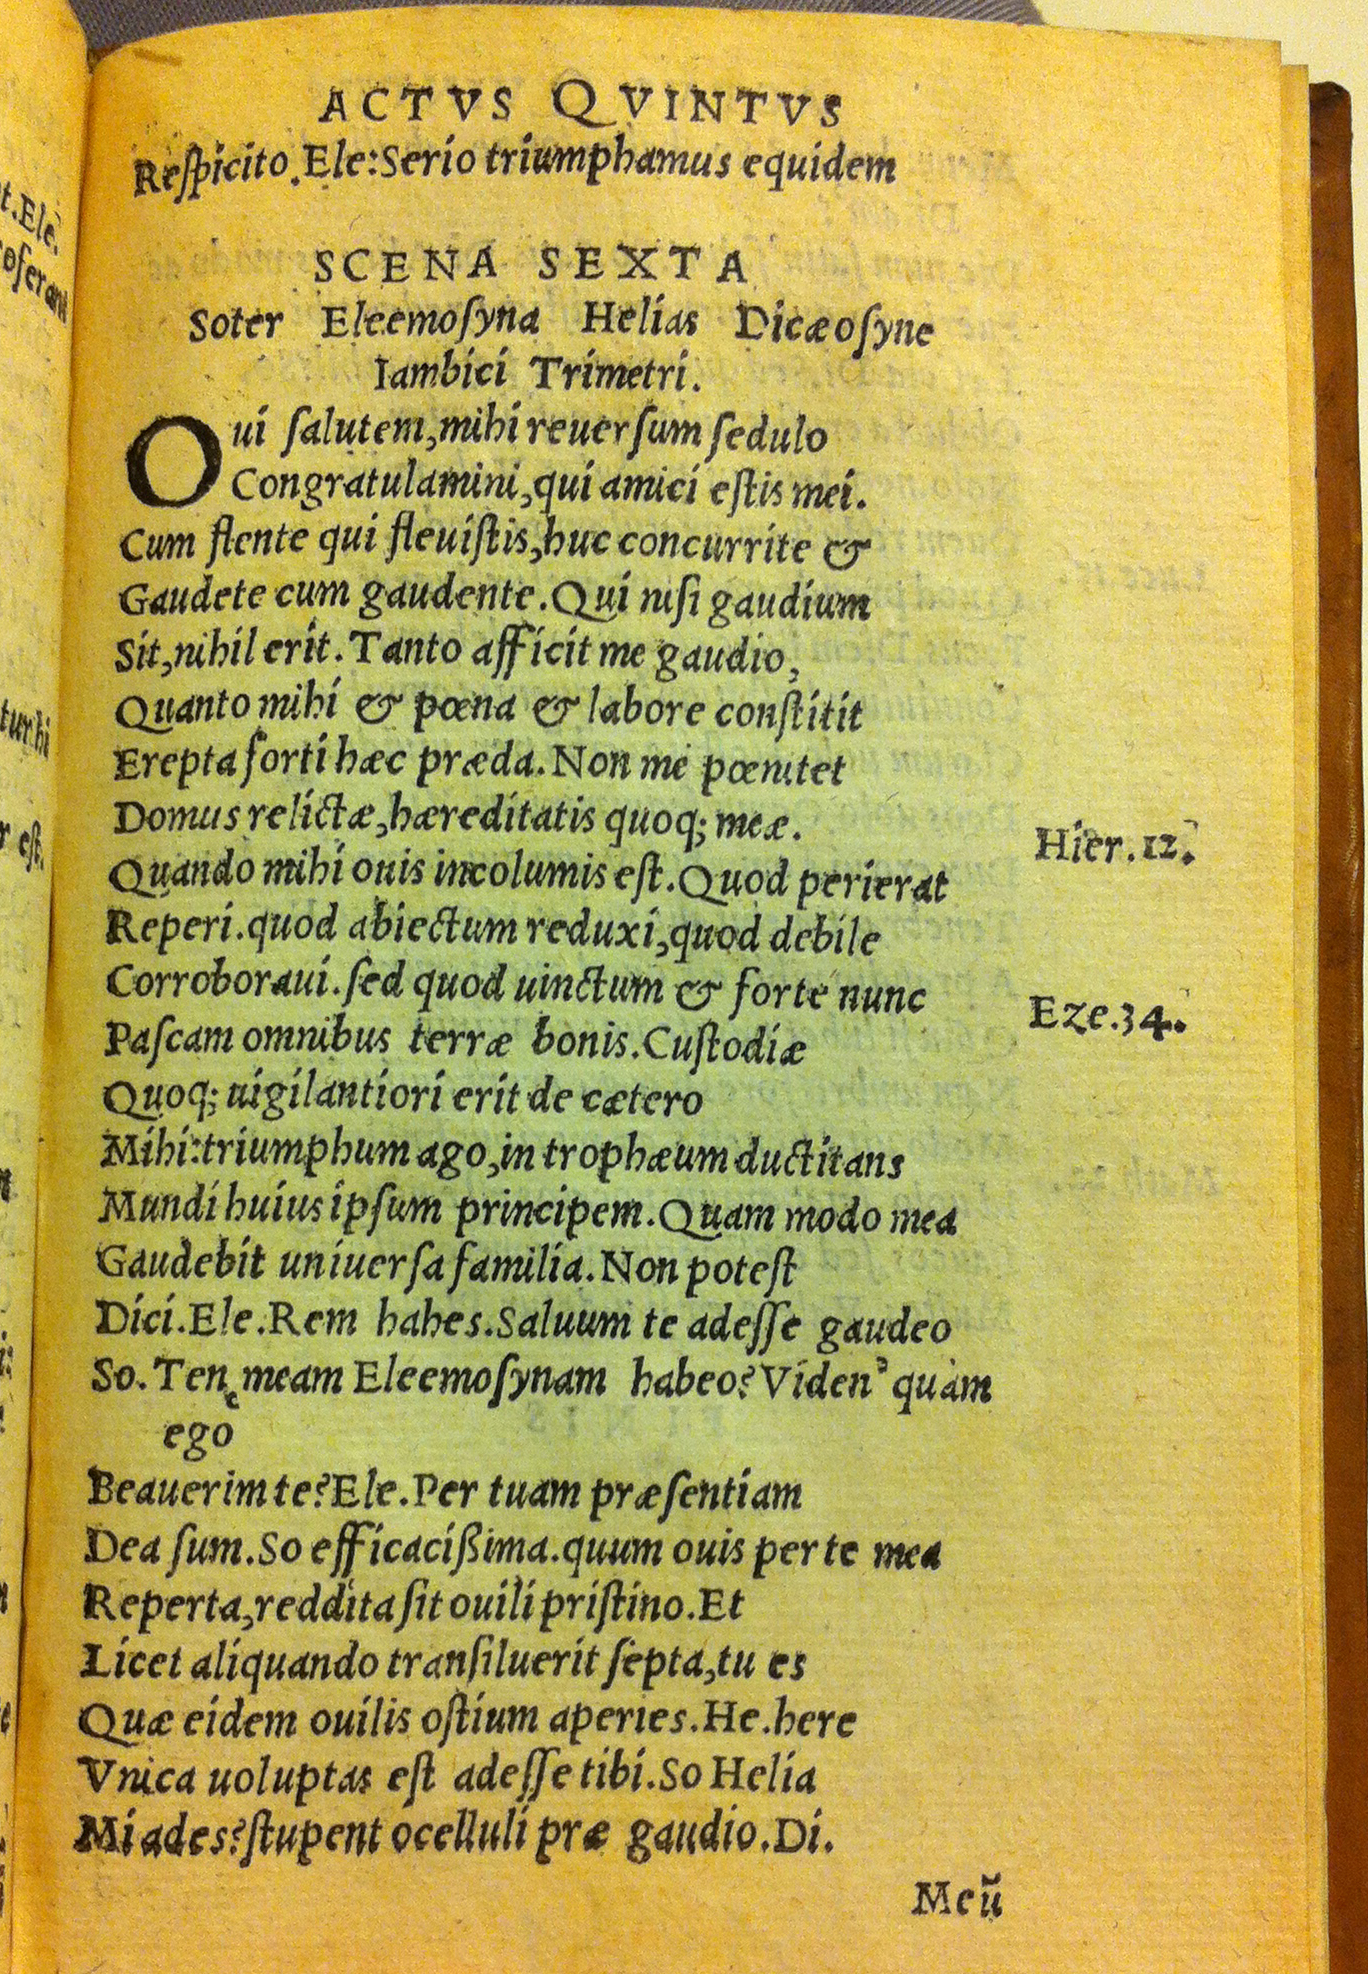 ACTVS QVINTVS
Respicito. Ele: Serio triumphamus equidem
SCENA SEXTA
Soter Eleemosyna Helias Dicæosyne
Iambici Trimetri.
Oui salutem, mihi reuersum sedulo
Congratulamini, qui amici estis mei.
Cum flente qui fleuistis, huc concurrite &
Gaudete cum gaudente. Qui nisi gaudium
Sit, nihil erit. Tanto afficit me gaudio,
Quanto mihi & pœna & labore constitit
Erepta forti hæc præda. Non me pœnitet
Domus relictæ, hæreditatis quoq; meæ.
Hier. 12.
Quando mihi ouis incolumis est. Quod perierat
Reperi. quod abiectum reduxi, quod debile
Corroboraui. sed quod uinctum & forte nunc
Eze. 34.
Pascam omnibus terræ bonis. Custodiæ
Quoq; uigilantiori erit de cætero
Mihi: triumphum ago, in trophæum ductitans
Mundi huius ipsum principem. Quam modo mea
Gaudebit uniuersa familia. Non potest
Dici. Ele. Rem hahes. Saluum te adesse gaudeo
So. Tene meam Eleemosynam habeo? Viden' quàm
ego
Beauerim te? Ele. Per tuam præsentiam
Dea sum. So efficacißima. quum ouis per te mea
Reperta, reddita sit ouili pristino. Et
Licet aliquando transiluerit septa, tu es
Quæ eidem ouilis ostium aperies. He. here
Vnica uoluptas est adesse tibi. So Helia
Mi ades? stupent ocelluli præ gaudio. Di.
Meũ